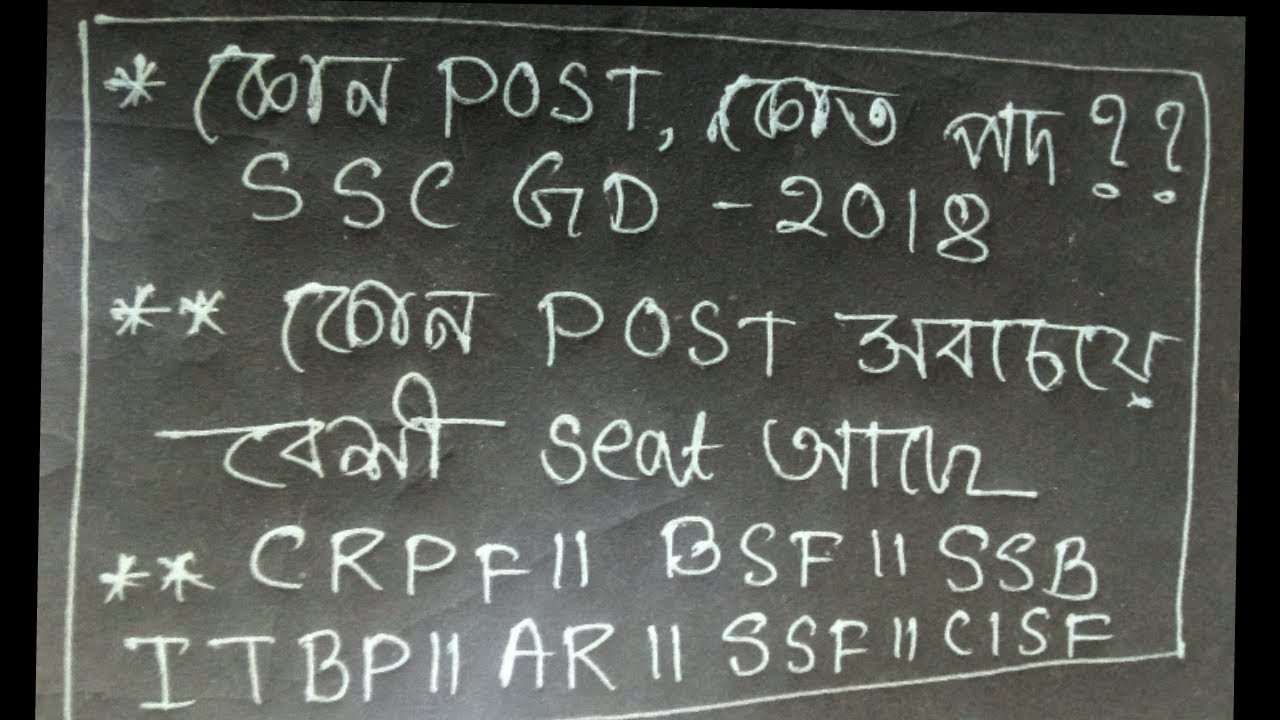 * কোন POST, কোত পদ ??
SSC GD - 2018
** কোন POST সবচেয়ে
বেশী seat আছে
** CRPF || BSF || SSB
ITBP || AR || SSF || CISF